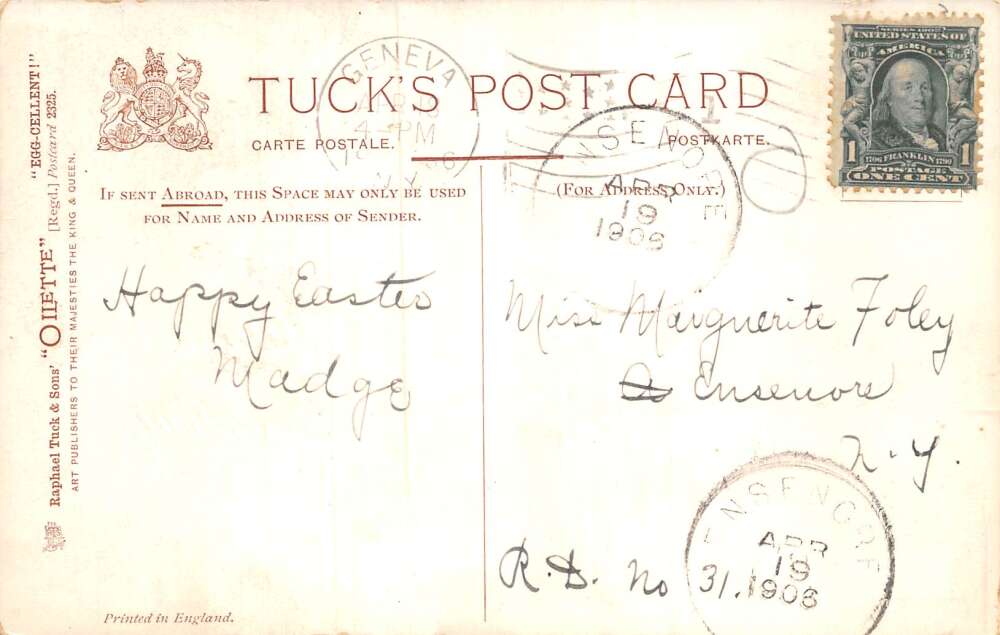 "EGG-CELLENT!"
Raphael Tuck & Sons' "OILETTE" [Regd.] Postcard 2325.
ART PUBLISHERS TO THEIR MAJESTIES THE KING & QUEEN.
TUCK'S POST CARD
CARTE POSTALE.
POSTKARTE.
IF SENT ABROAD, THIS SPACE MAY ONLY BE USED
FOR NAME AND ADDRESS OF SENDER.
(FOR ADDRESS ONLY.)
GENEVA
4-PM
N.Y.
ENSENORE
APR
19
1906
SERIES 1902
UNITED STATES OF
AMERICA
1 1706 FRANKLIN 1790 1
POSTAGE
ONE CENT
Happy Easter
Madge
Miss Marguerite Foley
Ensenore
N.Y.
R.D. No 31.
ENSENORE
APR
19
1906
Printed in England.